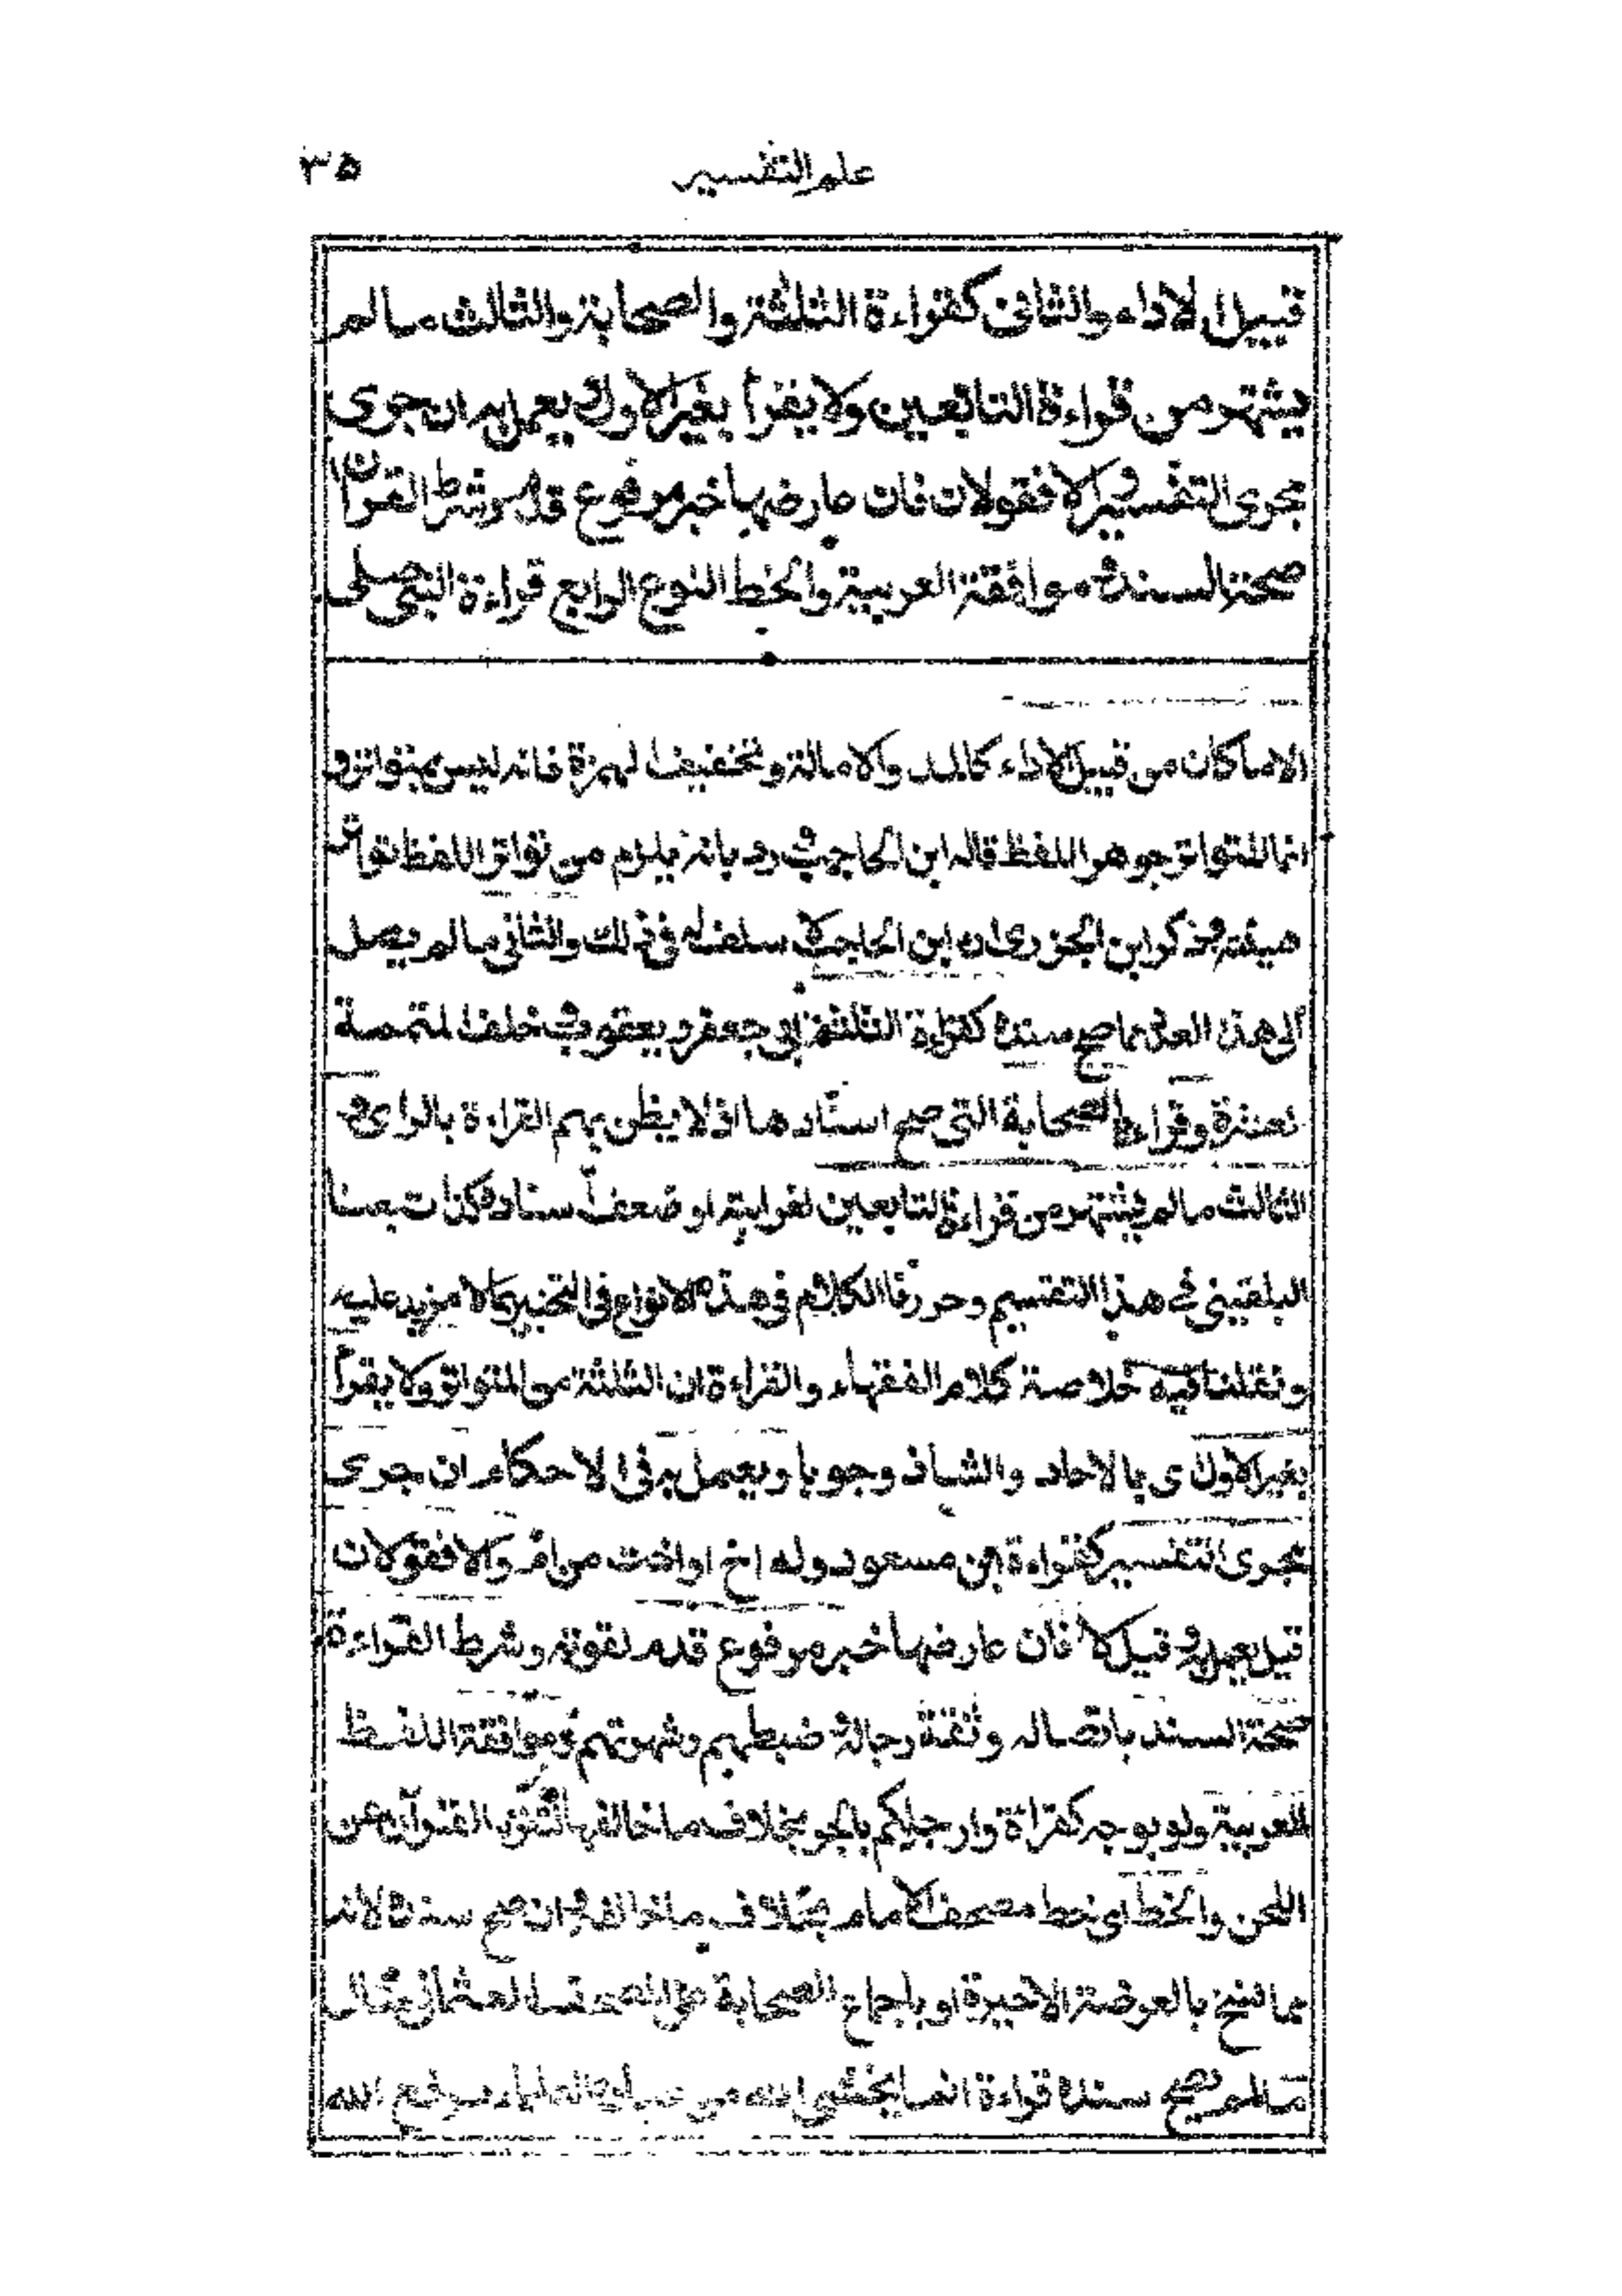 علم التفسير ٣٥
قبيل الاداء والثانى كقراءة الثلثة والصحابة والثالث مالم
يشتهر من قراءة التابعين ولا يقرأ بغير الاول ويعمل به ان جرى
مجرى التفسير والا فقولان فان عارضها خبر مرفوع قدم وشرط القرآن
صحة السند وموافقة العربية والخط النوع الرابع قراءة النبى صلى
الاماكان من قبيل الاداء كالمد والامالة وتخفيف الهمزة فانه ليس بمتواتر و
انما المتواتر جوهر اللفظ قاله ابن الحاجب ورد بانه يلزم من تواتر اللفظ تواتر
هيئته وذكر ابن الجزرى ان ابن الحاجب لا سلف له فى ذلك والثانى مالم يصل
الى هذا العدد مما صح سنده كقراءة الثلثة ابى جعفر ويعقوب وخلف المتممة
لعشرة وقراءة الصحابة التى صح اسنادها اذ لا يظن بهم القراءة بالراى و
الثالث مالم يشتهر من قراءة التابعين لغرابته او ضعف اسناده كذا تبعنا
البلقينى فى هذا التقسيم وحررنا الكلام فى هذه الانواع فى التحبير بما لا مزيد عليه
ونقلنا فيه خلاصة كلام الفقهاء والقراءة ان الثلثة من المتواتر ولا يقرأ
بغير الاول اى بالاحاد والشاذ وجوبا ويعمل به فى الاحكام ان جرى
مجرى التفسير كقراءة ابن مسعود وله اخ او اخت من ام والا فقولان
قيل يعمل وقيل لا فان عارضها خبر مرفوع قدم لقوته وشرط القراءة
صحة السند باتصاله وثقة رجاله وضبطهم وشهرتهم وموافقة اللفظ
العربية ولو بوجه كقراءة وارجلكم بالجر بخلاف ما خالفها لتنزه القرآن عن
اللحن والخط اى خط مصحف الامام بخلاف ما خالفه وان صح سنده لانه
مما نسخ بالعرضة الاخيرة او باجماع الصحابة على المصحف العثمانى مثال
مالم يصح سنده قراءة انما يخشى الله من عباده العلماء برفع الله